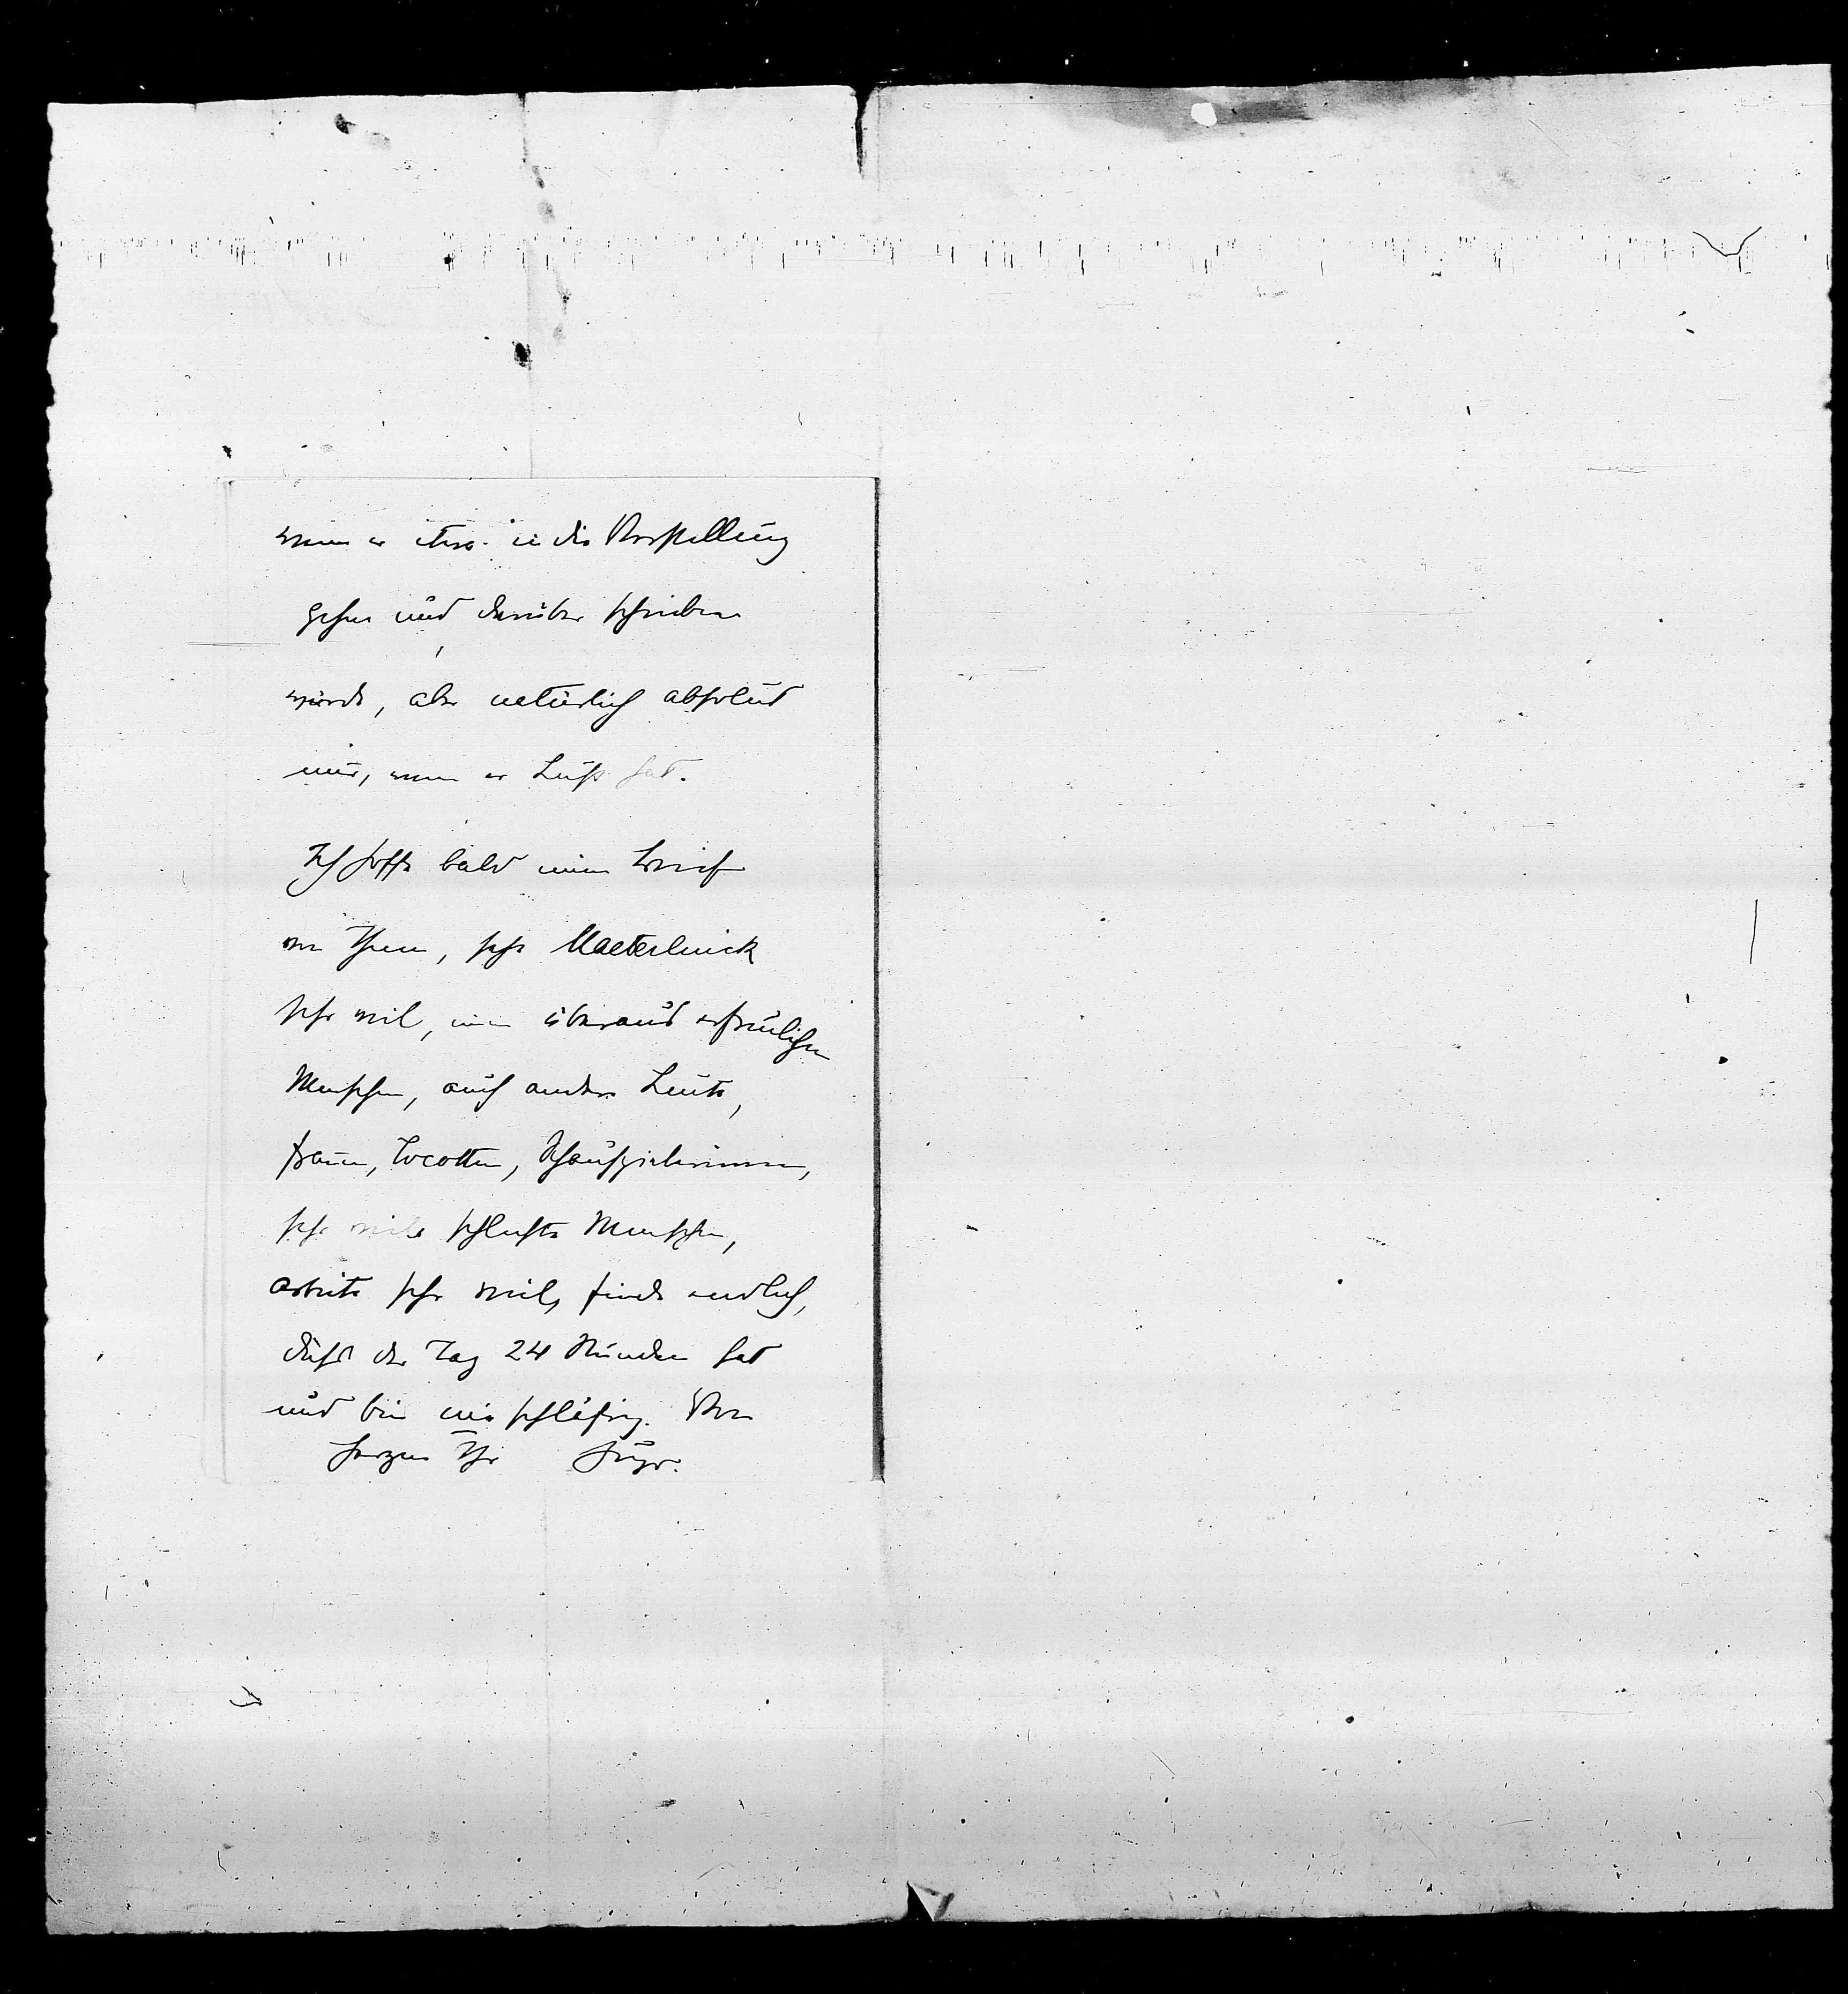 wenn er etwa in die Vorstellung
gehen und darüber schreiben
würde, aber natürlich absolut
nur, wenn er Lust hat.
Ich hoffe bald einen Brief
von Ihnen, sehe Maeterlinck
sehr viel, einen überaus erfreulichen
Menschen, auch andere Leute,
Frauen, Cocotten, Schauspielerinnen,
sehr viele schlechte Menschen,
arbeite sehr viel, finde endlich,
dass der Tag 24 Stunden hat
und bin nie schläfrig. Von
Herzen Ihr Hugo.